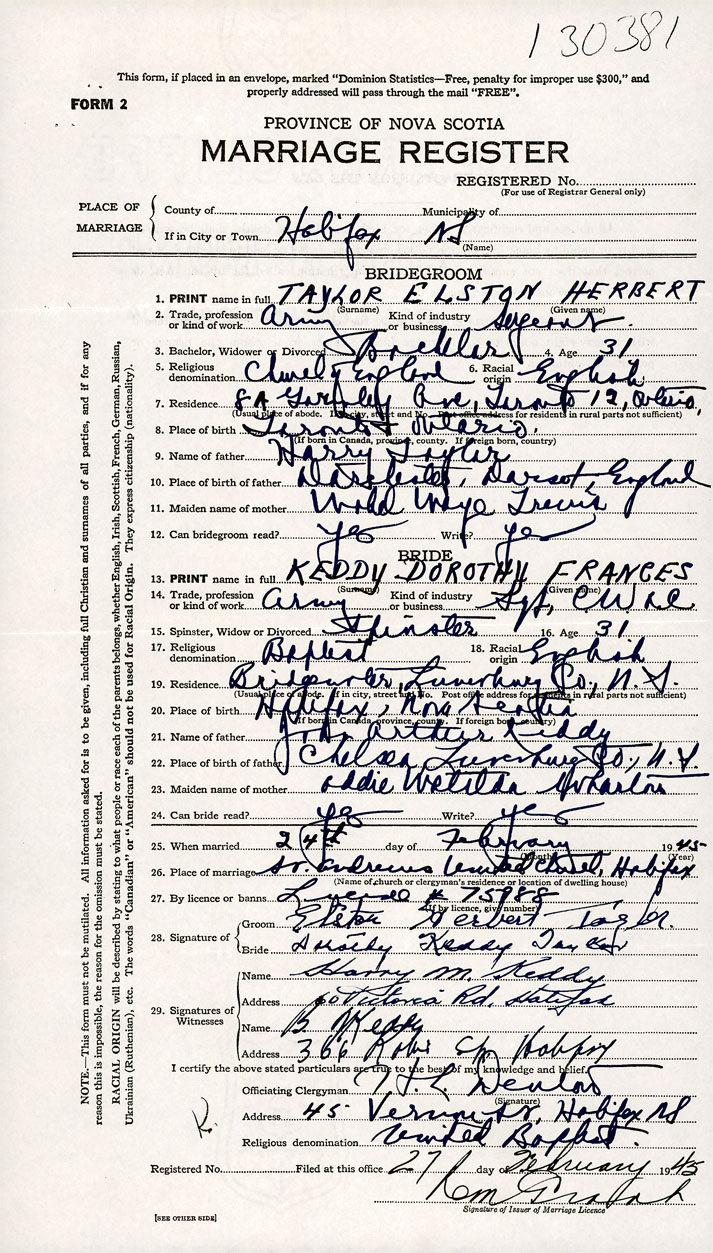 130381
This form, if placed in an envelope, marked "Dominion Statistics—Free, penalty for improper use $300," and
properly addressed will pass through the mail "FREE".
FORM 2
PROVINCE OF NOVA SCOTIA
MARRIAGE REGISTER
REGISTERED No.
(For use of Registrar General only)
PLACE OF MARRIAGE
County of Municipality of
If in City or Town Halifax NS
(Name)
BRIDEGROOM
1. PRINT name in full TAYLOR ELSTON HERBERT
(Surname) (Given name)
2. Trade, profession or kind of work Army Kind of industry or business Sergeant
3. Bachelor, Widower or Divorced Bachelor 4. Age 31
5. Religious denomination Church England 6. Racial origin English
7. Residence 8A Ave, Toronto 12, Ontario,
(Usual place of abode. If in city, street and No. Post office address for residents in rural parts not sufficient)
8. Place of birth Toronto Ontario.
(If born in Canada, province, county. If foreign born, country)
9. Name of father Harry Taylor
10. Place of birth of father Dorchester, Dorset, England
11. Maiden name of mother Maye
12. Can bridegroom read? yes Write? yes
BRIDE
13. PRINT name in full KEDDY DOROTHY FRANCES
(Surname) (Given name)
14. Trade, profession or kind of work Army Kind of industry or business Sgt, CWAC
15. Spinster, Widow or Divorced Spinster 16. Age 31
17. Religious denomination Baptist 18. Racial origin English
19. Residence Bridgewater, Lunenburg Co., N.S.
(Usual place of abode. If in city, street and No. Post office address for residents in rural parts not sufficient)
20. Place of birth Halifax, Nova Scotia
(If born in Canada, province, county. If foreign born, country)
21. Name of father John Arthur Keddy
22. Place of birth of father Chelsea Lunenburg Co., N.S.
23. Maiden name of mother Addie Matilda Wharton
24. Can bride read? yes Write? yes
25. When married 24th day of February 1945
(Month) (Year)
26. Place of marriage St. Andrews United Church, Halifax
(Name of church or clergyman's residence or location of dwelling house)
27. By licence or banns License # 75988
(If by licence, give number)
28. Signature of
Groom Elston Herbert Taylor.
Bride Dorothy Keddy Taylor
29. Signatures of Witnesses
Name Harry M. Keddy
Address Victoria Rd, Halifax
Name B Keddy
Address 366 Robie St. Halifax
I certify the above stated particulars are true to the best of my knowledge and belief.
Officiating Clergyman H. L. Denton
(Signature)
Address 45 Vernon St, Halifax NS
Religious denomination United Baptist.
Registered No. Filed at this office 27 day of February 1945
Signature of Issuer of Marriage Licence
[SEE OTHER SIDE]
NOTE.—This form must not be mutilated. All information asked for is to be given, including full Christian and surnames of all parties, and if for any
reason this is impossible, the reason for the omission must be stated.
RACIAL ORIGIN will be described by stating to what people or race each of the parents belongs, whether English, Irish, Scottish, French, German, Russian,
Ukrainian (Ruthenian), etc. The words "Canadian" or "American" should not be used for Racial Origin. They express citizenship (nationality).